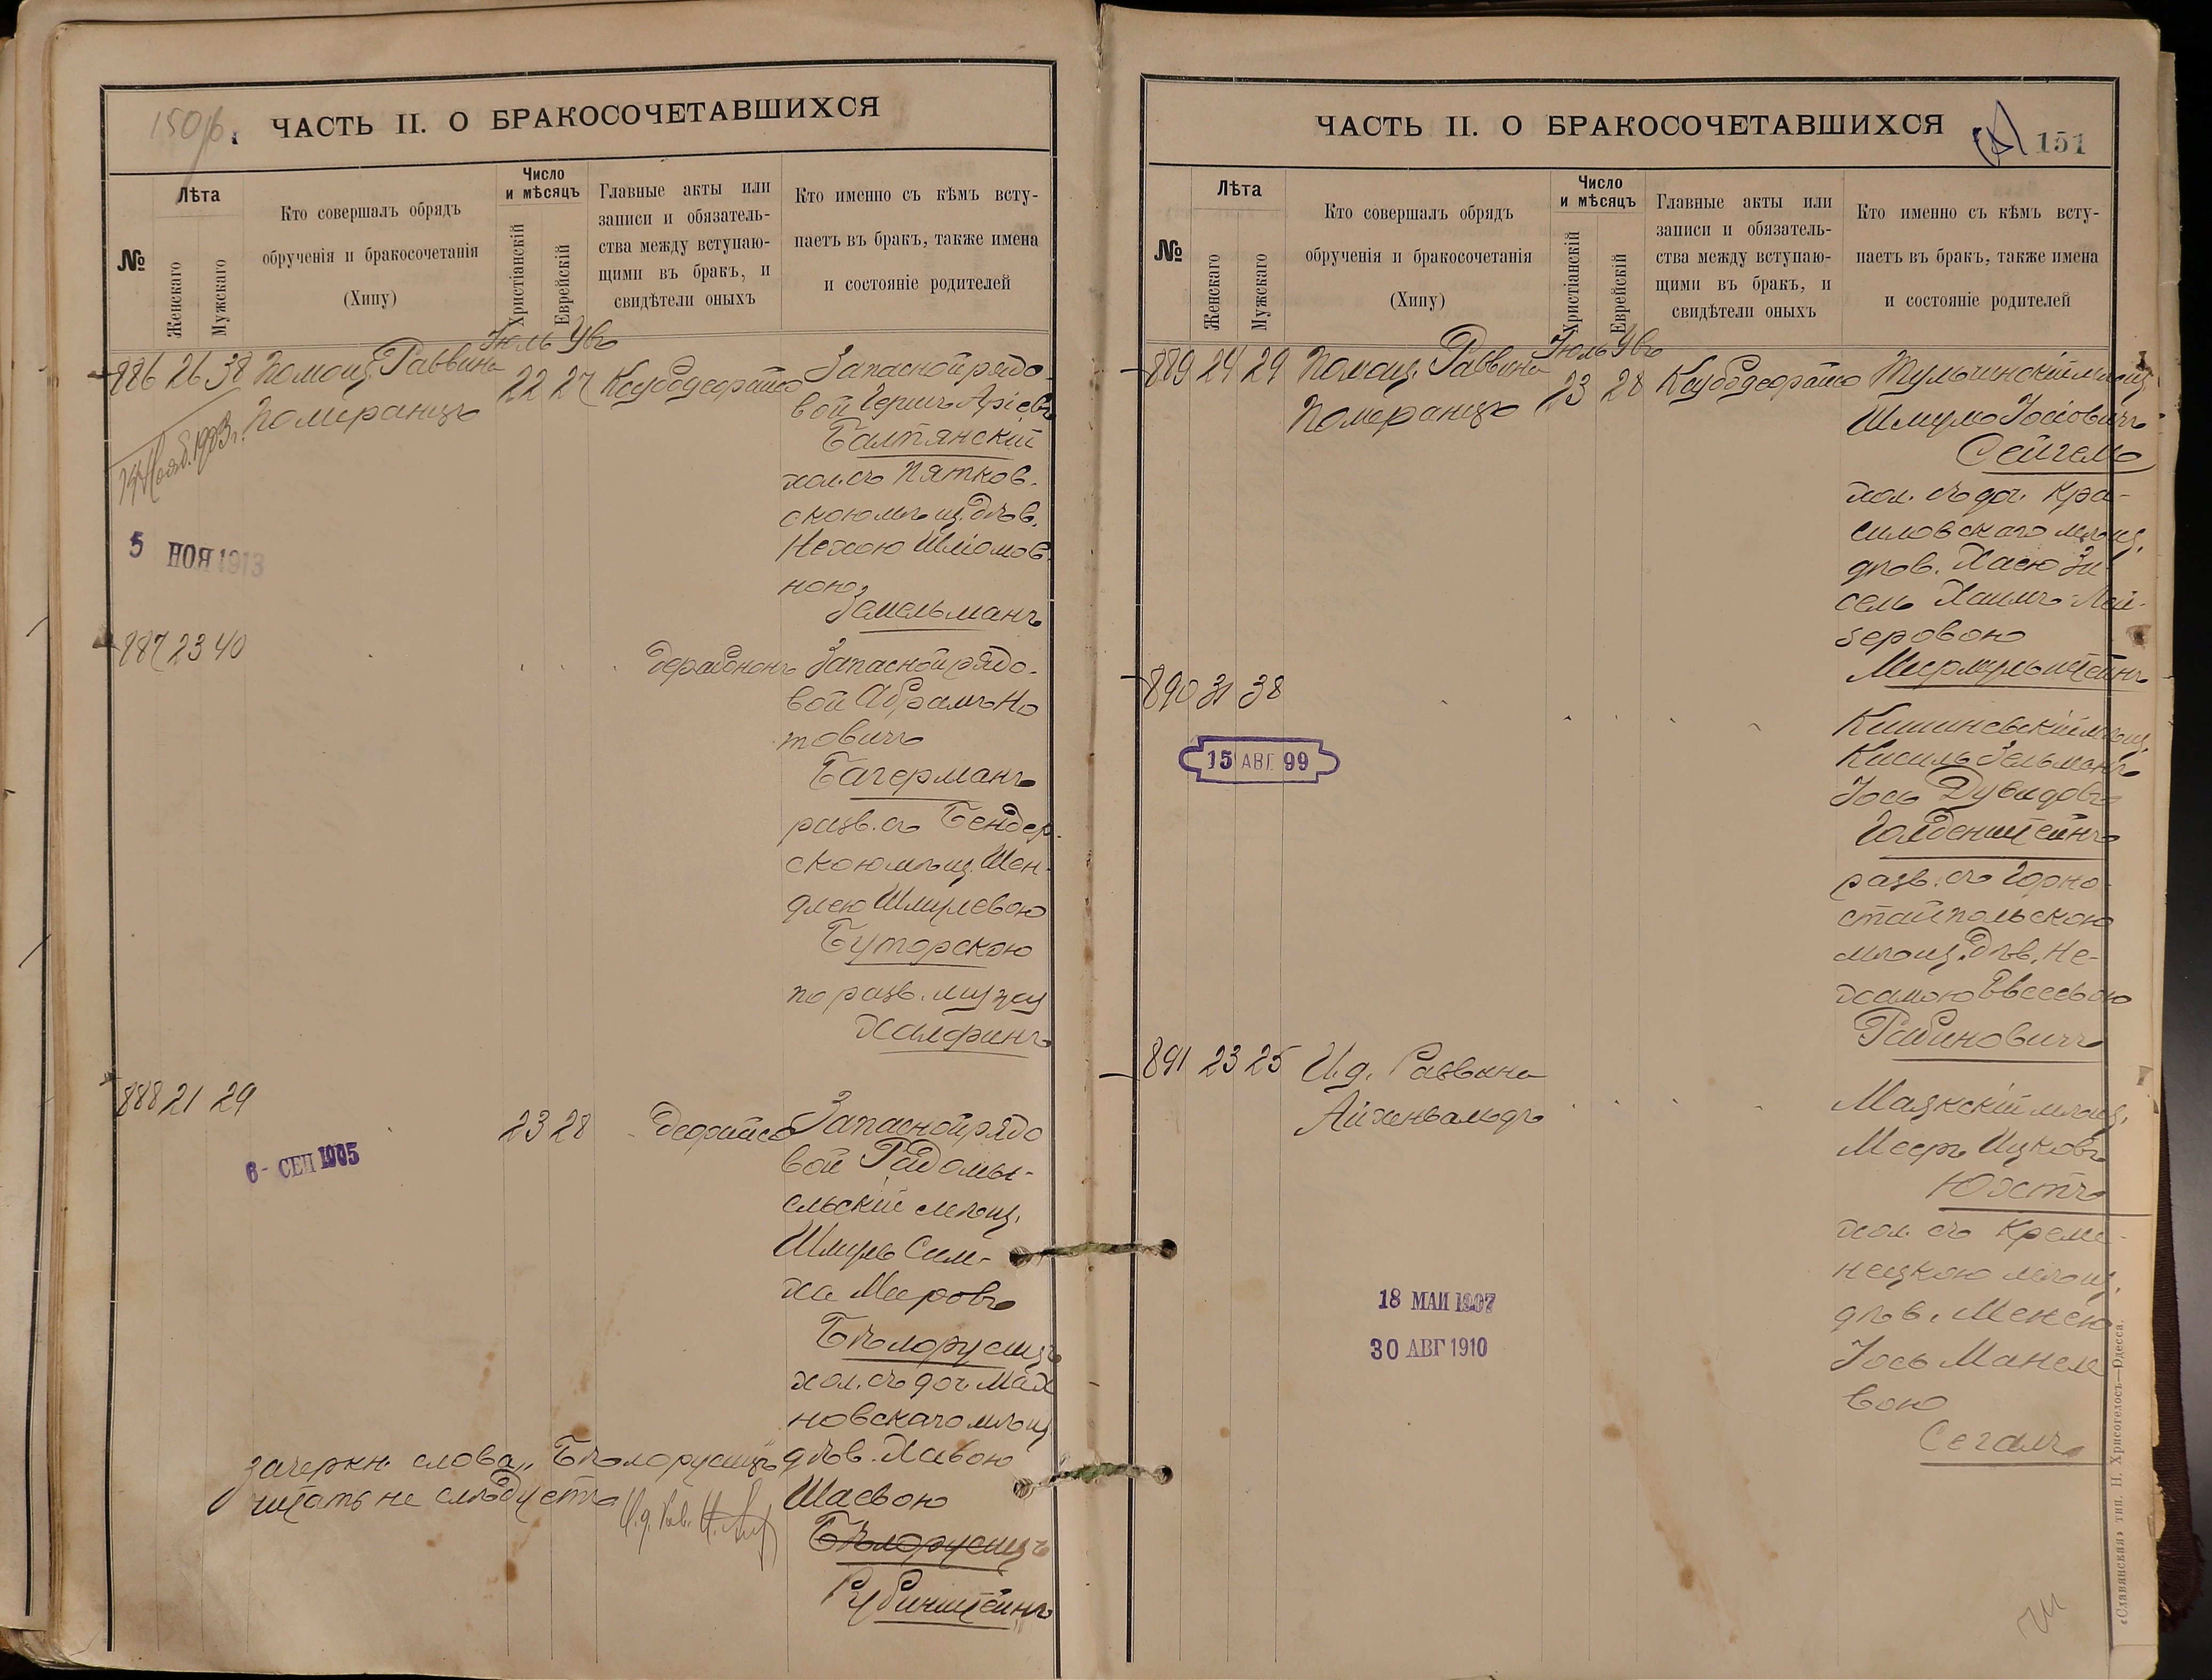 150 об.
ЧАСТЬ II. О БРАКОСОЧЕТАВШИХСЯ
№
Лѣта
Женскаго
Мужскаго
Кто совершалъ обрядъ
обрученія и бракосочетанія
(Хипу)
Число
и мѣсяцъ
Христіанскій
Еврейскій
Главные акты или
записи и обязатель-
ства между вступаю-
щими въ бракъ, и
свидѣтели оныхъ
Кто именно съ кѣмъ всту-
паетъ въ бракъ, также имена
и состояніе родителей
Іюль
886 26 38 Помощ. Раввина 22 27
Померанцъ
Запасной рядо-
вой Герш Аріевъ
Балтянскій
хол. съ Пятков-
скою мѣщ. дѣв.
Нехою Шліомов-
ною
Земельманъ
5 НОЯ 1913
887 23 40
Запасной рядо-
вой Абрамъ Но
товичъ
Багерманъ
разв. съ Бендер-
скою мѣщ. Шен-
длею Шмулевою
Буторскою
по разв. мужу
Халфинъ
888 21 29 23 28
Запасной рядо
вой Радомы-
сльскій мѣщ.
Шмуль Сим-
ха Меровъ
Бѣлорусицъ
хол. съ доч. Мах
новскаго мѣщ.
дѣв. Хавою
Шаевою
Бѣлорусицъ
Рубинштейнъ
6- СЕН 1905
зачеркн. слова „Бѣлорусицъ“
читать не слѣдуетъ
И. д. Рав.
ЧАСТЬ II. О БРАКОСОЧЕТАВШИХСЯ
151
№
Лѣта
Женскаго
Мужскаго
Кто совершалъ обрядъ
обрученія и бракосочетанія
(Хипу)
Число
и мѣсяцъ
Христіанскій
Еврейскій
Главные акты или
записи и обязатель-
ства между вступаю-
щими въ бракъ, и
свидѣтели оныхъ
Кто именно съ кѣмъ всту-
паетъ въ бракъ, также имена
и состояніе родителей
Іюль
889 24 29 Помощ. Раввина 23 28
Померанцъ
Тульчинскій мѣщ.
Шмуль Іосіовичъ
Сейгель
хол. съ доч. Кра-
силовскаго мѣщ.
дѣв. Хаею Зи-
сель Хаимъ-Лей-
зеровою
Меермульштейнъ
890 31 38
Кишиневскій мѣщ.
Кисиль Зельманъ
Іось Дувидовъ
Голденштейнъ
разв. съ Горно-
стайпольскою
мѣщ. дѣв. Не-
хамою Евсеевою
Рабиновичъ
15 АВГ. 99
891 23 25 И. д. Раввина
Айхенвальдъ
Маякскій мѣщ.
Мееръ Ицковъ
Юхтъ
хол. съ Креме-
нецкою мѣщ.
дѣв. Менею
Іось Манеле
вою
Сегалъ
18 МАИ 1907
30 АВГ 1910
«Славянская» тип. Н. Хрисогелосъ—Одесса.